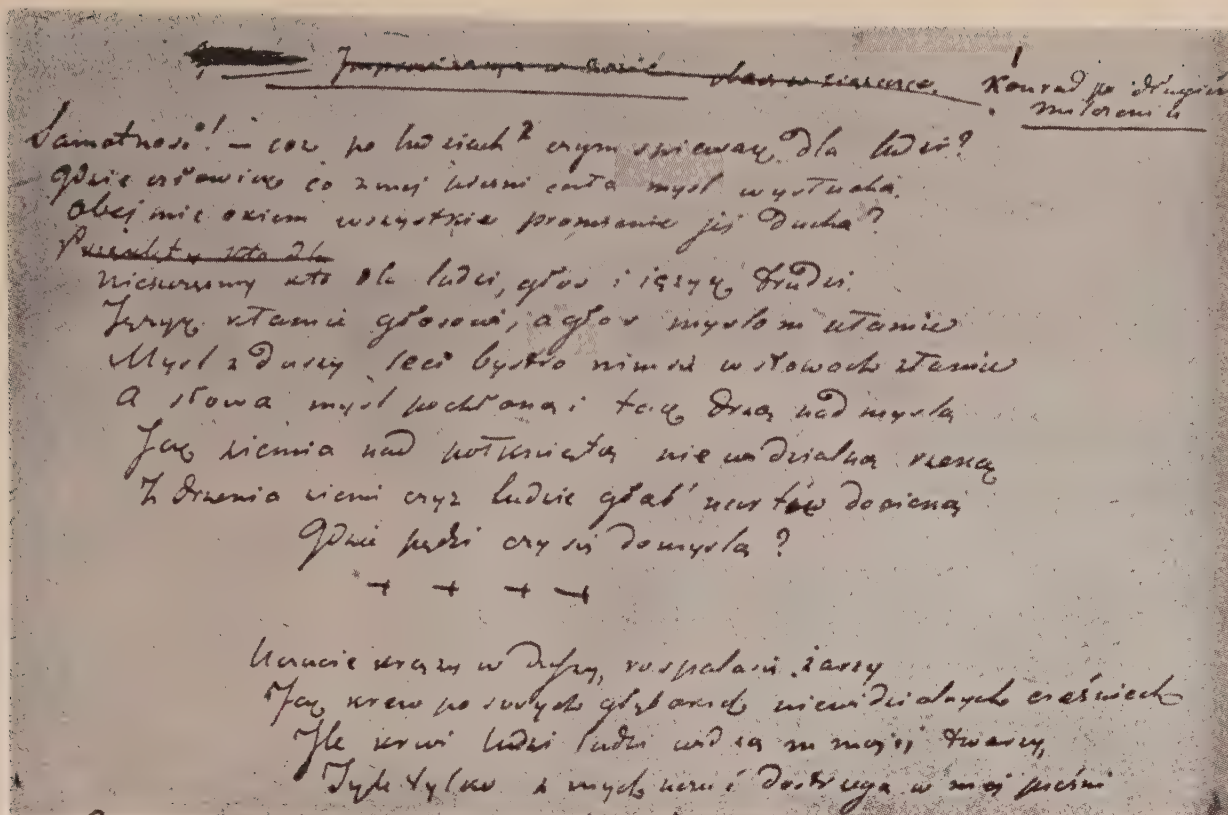 Improwizacja w
Konrad po długiém
milczeniu
Samotność! – coż po ludziach? czym spiewak dla ludzi?
Gdzie człowiek co z mej pieśni całą mysl wysłucha,
Obejmie okiem wszystkie promienie jej Ducha?
kto dla
Nieszczęsny kto dla ludzi, głos i język trudzi.
Język kłamie głosowi, a głos myslom kłamie
Mysl z Duszy leci bystro nim się w słowach złamie
A słowa mysl pochłoną i tak drżą nad myslą
Jak ziemia nad połkniętą niewidzialną rzeką
Z drżenia ziemi czyż ludzie głąb' nurtów docieką
Gdzie pędzi czy się domyslą?
+ + + +
Uczucie krąży w Duszy, rospala się żarzy
Jak krew po swych głębokich niewidzialnych cieśniach
Ile krwi ludzie widzą w mojej twarzy,
Tyle tylko z mych uczuć dostrzegą w mej pieśni